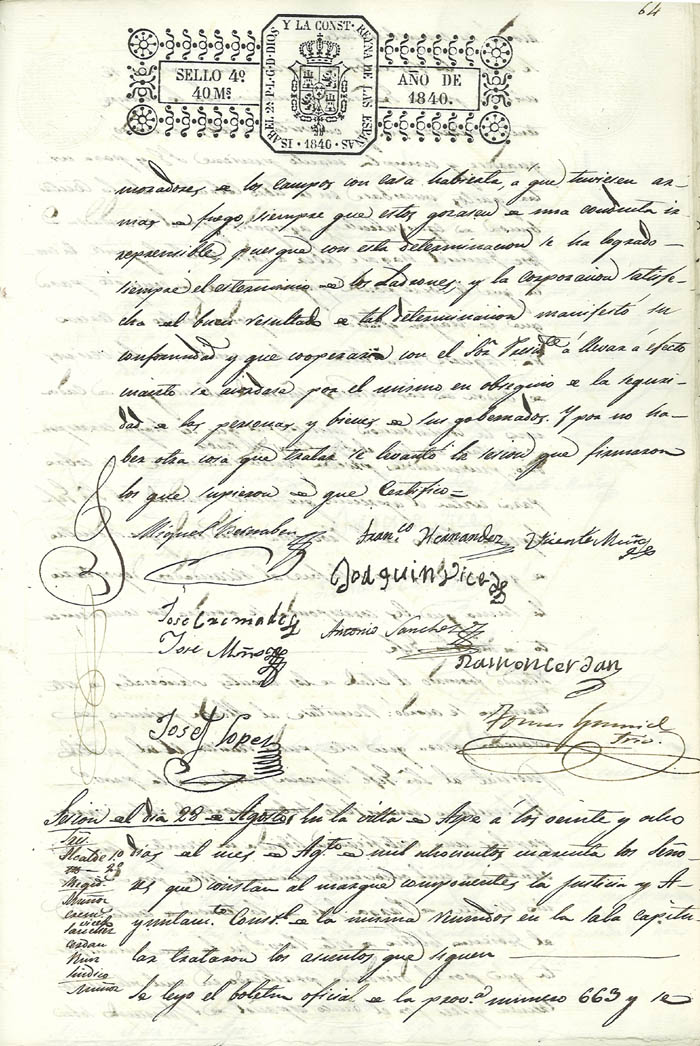 64
ISABEL 2ª P. L. G. D. DIOS Y LA CONST. REYNA DE LAS ESPAÑAS
SELLO 4º
40 Ms
AÑO DE
1840.
1840
moradores de los campos con casa habierta, a que tuviesen ar-
mas de fuego, siempre que estos gozasen de una conducta ir
reprensible, pues que con esta determinacion se ha logrado
siempre el esterminio de los Ladrones; y la corporacion satisfe-
cha del buen resultado de tal determinacion manifestó su
conformidad y que cooperaria con el Sor Presidte á llevar á efecto
cuanto se por el mismo en obsequio de la seguri-
dad de las personas y bienes de sus gobernados. Y por no ha-
ber otra cosa que tratar se levantó la sesion que firmaron
los que supieron de que Certifico=
Miguel
Franco Hernandez
Vicente Muñoz
Joaquin Vicedo
Jose Cremades
Antonio Sanchez
Jose Muñoz
Ramon Cerdan
Josef Lopez
Tomas
Srio.
Sesion del dia 28 de Agosto
En la villa de Aspe á los veinte y ocho
dias del mes de Agto de mil ochocientos cuarenta los Seño-
res que constan al margen componentes la Justicia y A-
yuntamto Constl de la misma reunidos en la sala capitu
lar trataron los asuntos que siguen
Sres.
Alcalde 1º
2º
Muñoz
Crem.
Vicedo
Sanchez
Cerdan
Sindico
Muñoz
Se leyo el boletin oficial de la prova numero 663 y se